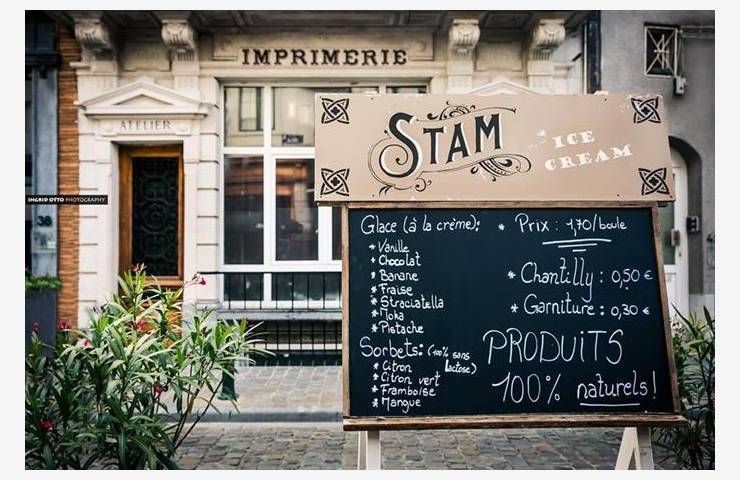 IMPRIMERIE
ATELIER
INGRID OTTO PHOTOGRAPHY
38
STAM
ICE
CREAM
Glace (à la crème):
* Vanille
* Chocolat
* Banane
* Fraise
* Straciatella
* Moka
* Pistache
Sorbets: (100% sans lactose)
* Citron
* Citron vert
* Framboise
* Mangue
* Prix : 1,70/boule
* Chantilly : 0,50 €
* Garniture : 0,30 €
PRODUiTS
100% naturels!